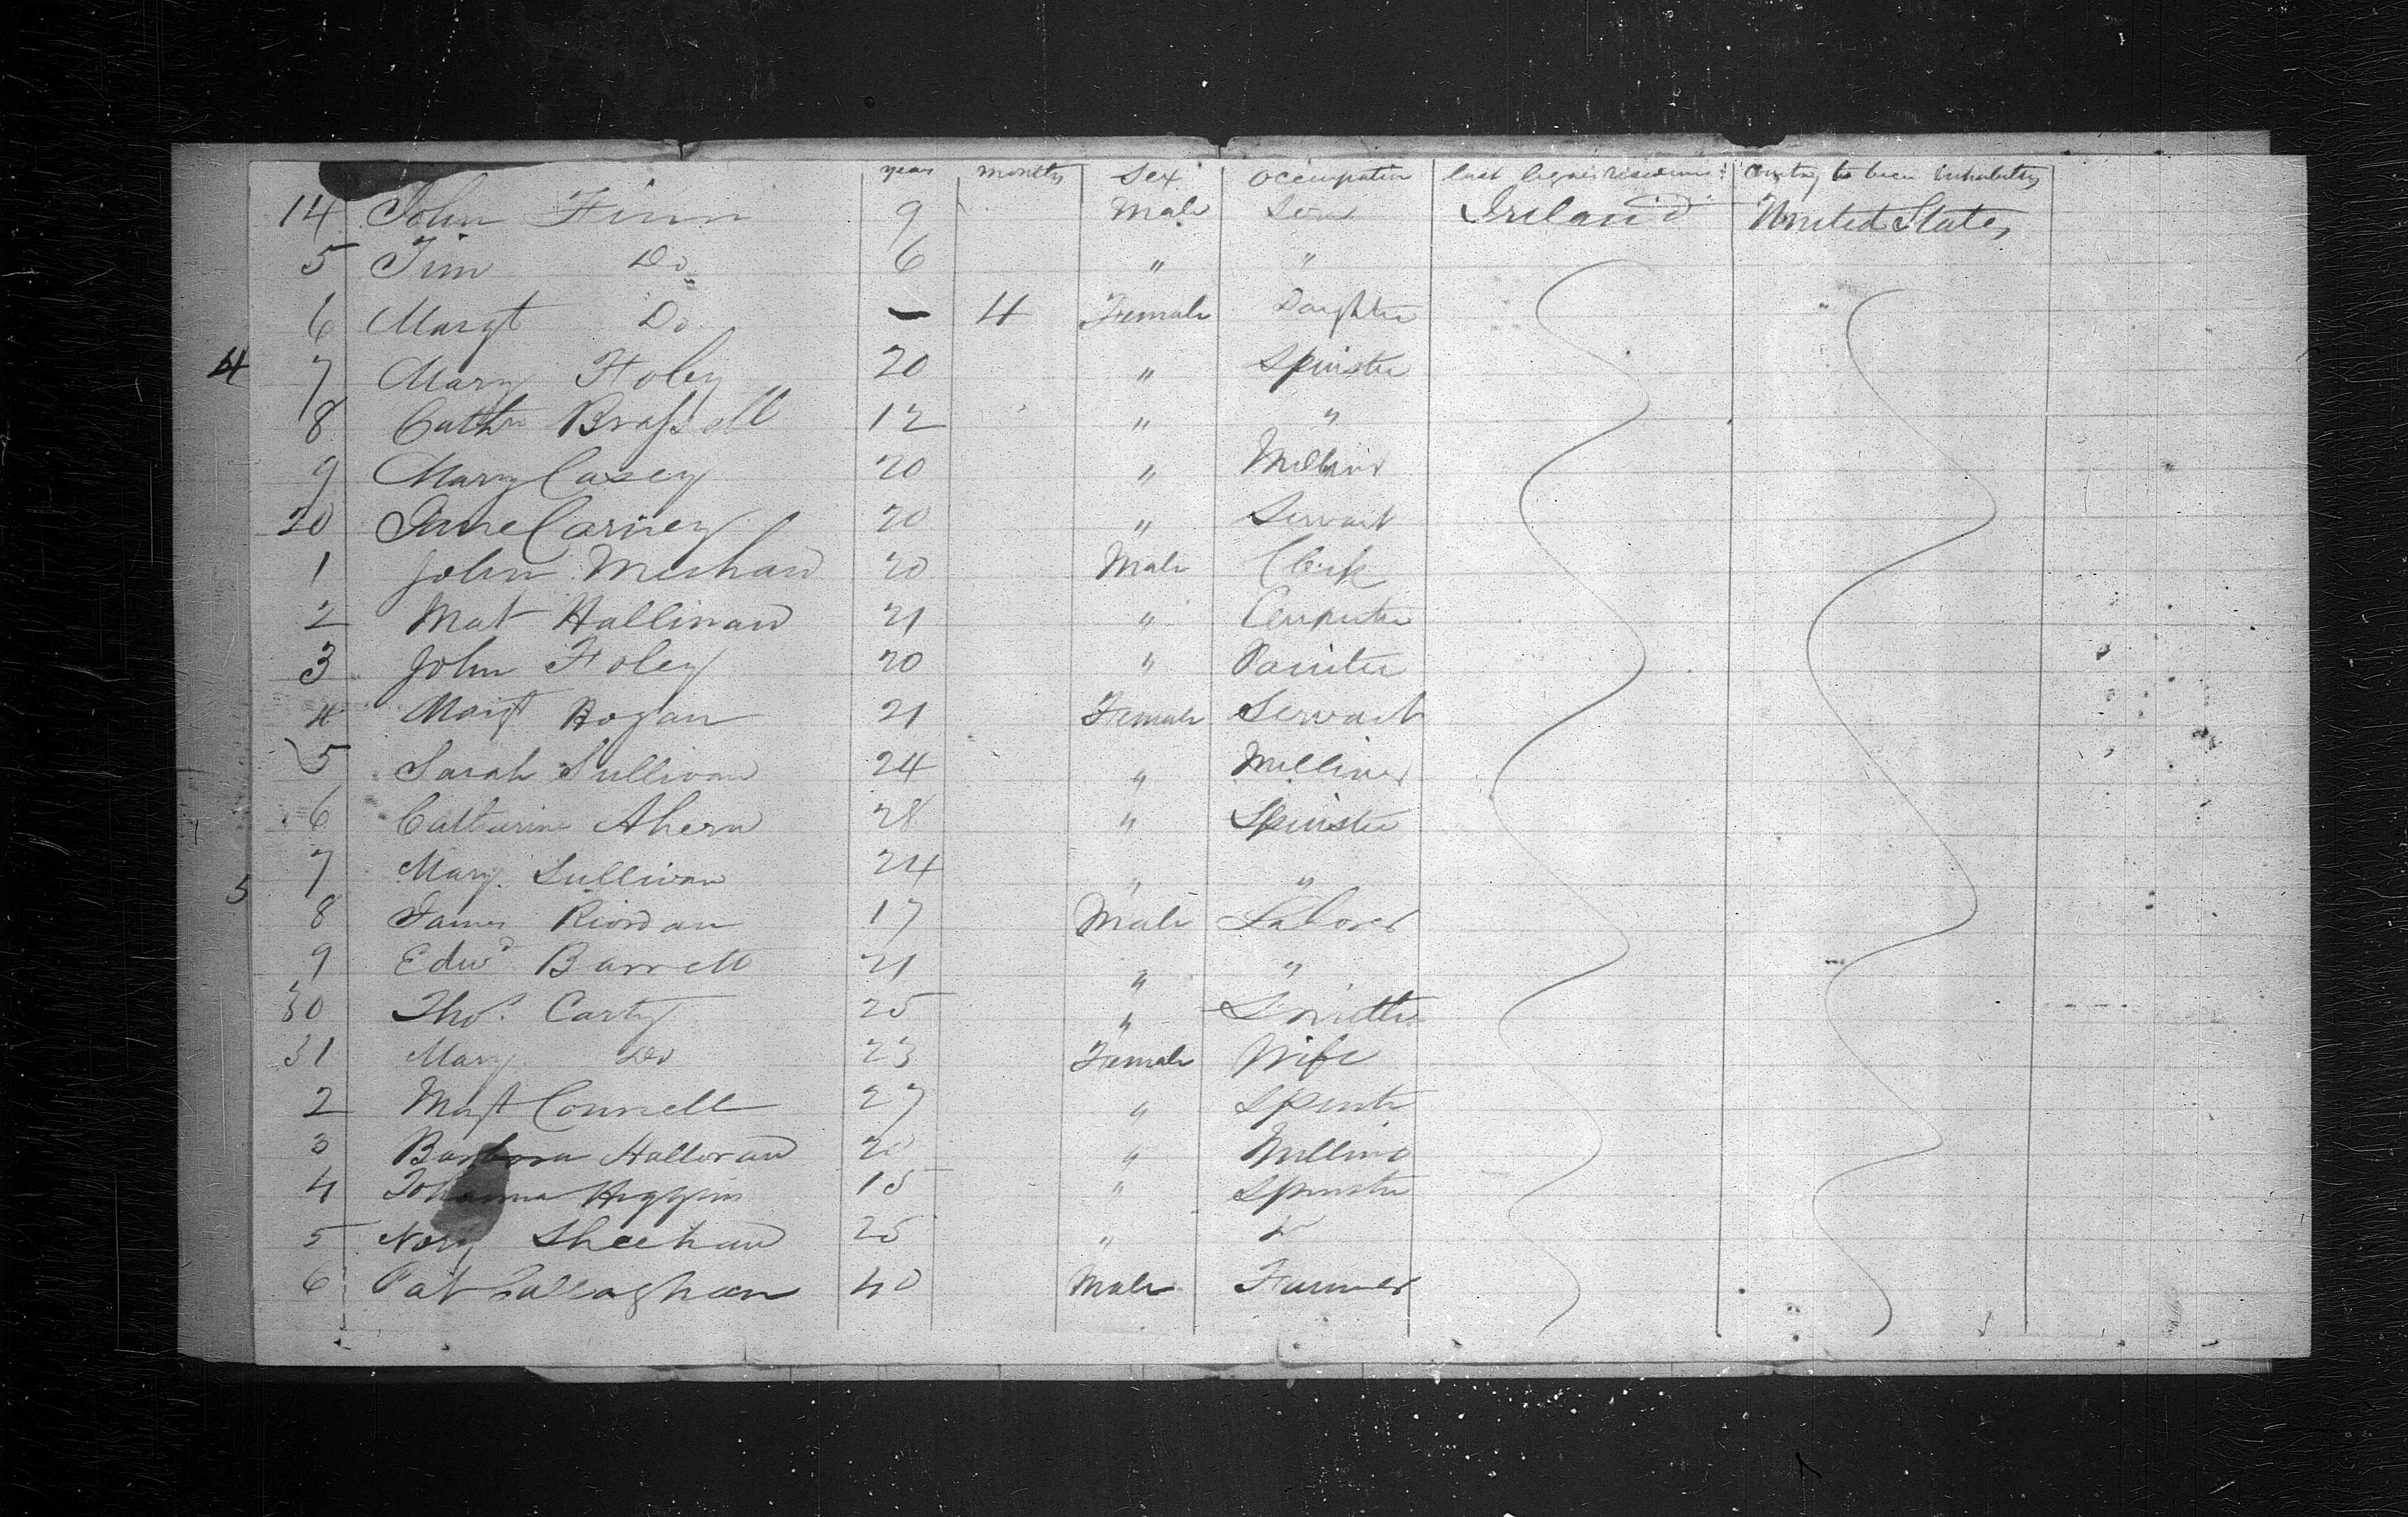 years months Sex Occupation last legal residence Country to been inhabiting
14 John Finn 9 Male Son Ireland United States
5 Tim Do 6 " "
6 Margt Do — 4 Female Daughter
4 7 Mary Foley 20 " Spinster
8 Cathn Brassell 12 " "
9 Mary Casey 20 " Milliner
20 Jane Carney 20 " Servant
1 John Meehan 20 Male Clerk
2 Mat Hallinan 21 " Carpenter
3 John Foley 20 " Painter
4 Margt Hogan 21 Female Servant
5 Sarah Sullivan 24 " Milliner
6 Catherine Ahern 28 " Spinster
7 Mary Sullivan 24 " "
5 8 James Riordan 17 Male Laborer
9 Edwd Barrett 21 " "
30 Thos. Carty 25 " Smith
31 Mary Do 23 Female Wife
2 Margt Connell 27 " Spinster
3 Barbora Halloran 20 " Milliner
4 Johanna Higgins 15 " Spinster
5 Nory Sheehan 25 "
6 Pat Callaghan 40 Male Farmer